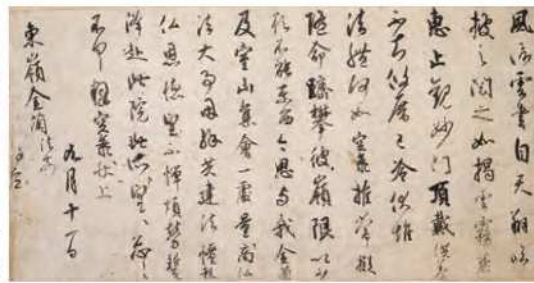 風信雲書自天翔臨
披之閲之如掲雲霧兼
恵止觀妙門頂戴供養
不知攸厝已冷伏惟
法體何如空海推常擬
随命躋攀彼嶺限以少
願不能東西今思与我金蘭
及室山集會一處量商仏
法大事因縁共建法幢報
仏恩徳望不憚煩勞蹔
降赴此院此所々望々忩々
不具釋空海状上
九月十一日
東嶺金蘭法前
謹空